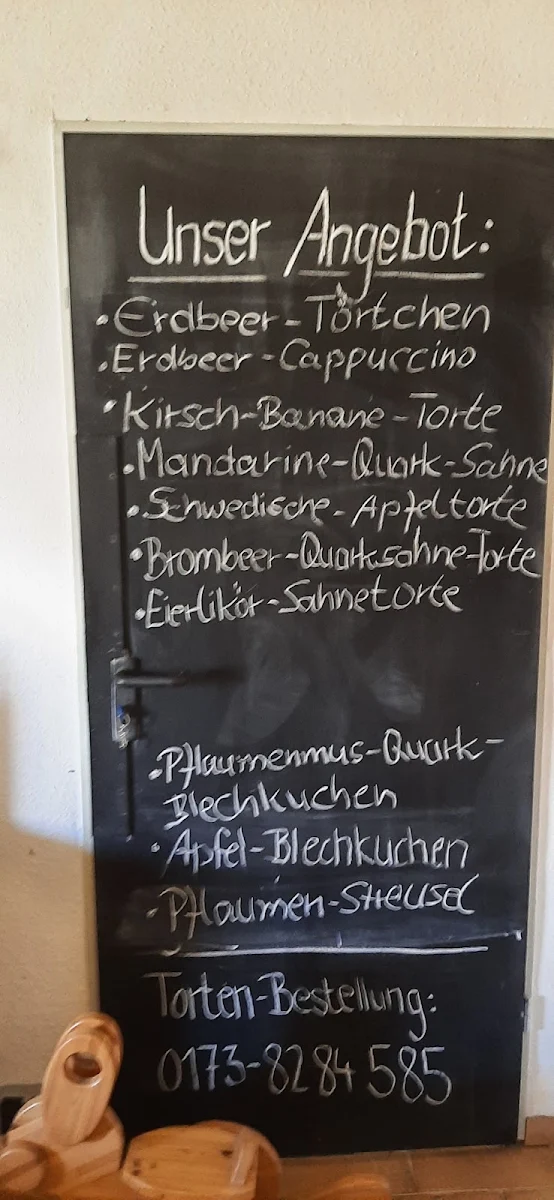 Unser Angebot:
• Erdbeer-Törtchen
• Erdbeer-Cappuccino
• Kirsch-Banane-Torte
• Mandarine-Quark-Sahne
• Schwedische-Apfeltorte
• Brombeer-Quarksahne-Torte
• Eierlikör-Sahnetorte
• Pflaumenmus-Quark-
Blechkuchen
• Apfel-Blechkuchen
• Pflaumen-Streusel
Torten-Bestellung:
0173-8284585